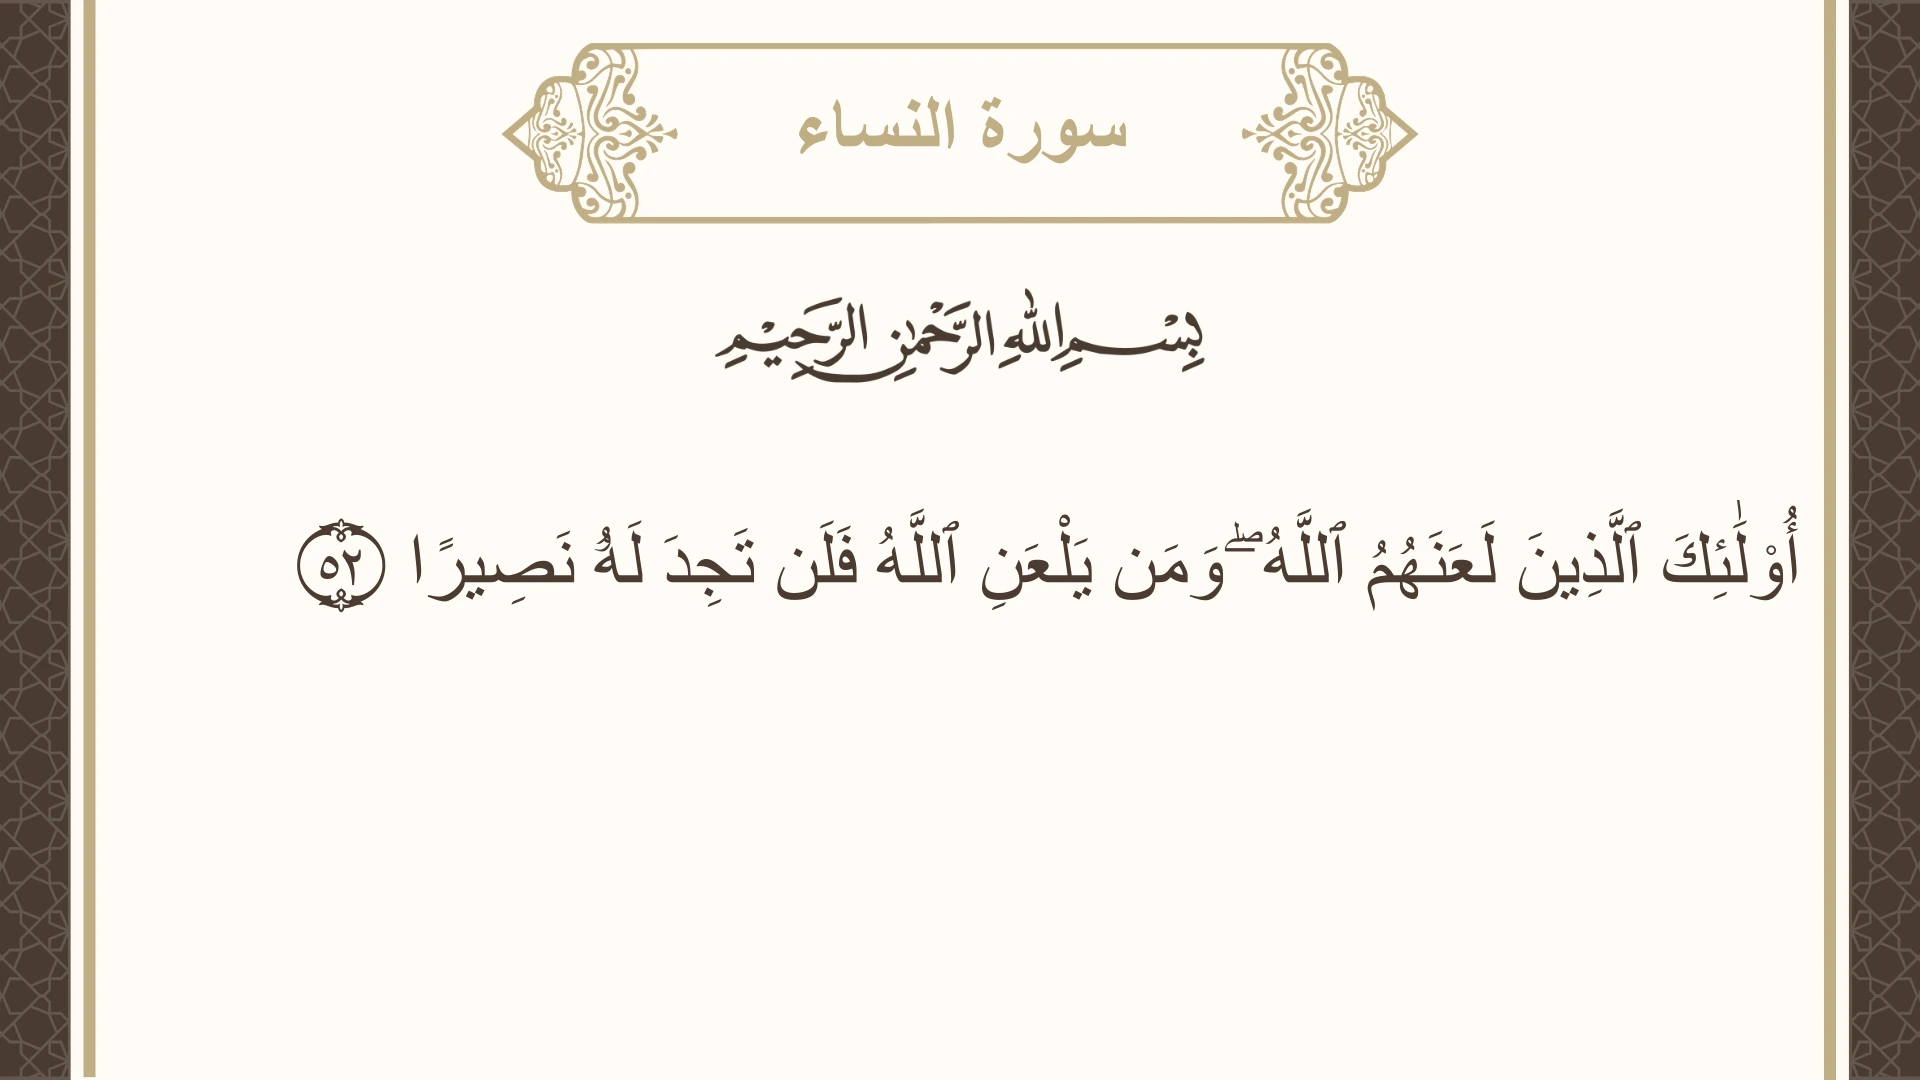 سورة النساء
بِسْمِ اللهِ الرَّحْمٰنِ الرَّحِيْمِ
أُوْلَٰٓئِكَ ٱلَّذِينَ لَعَنَهُمُ ٱللَّهُ ۖ وَمَن يَلْعَنِ ٱللَّهُ فَلَن تَجِدَ لَهُۥ نَصِيرًا ٥٢